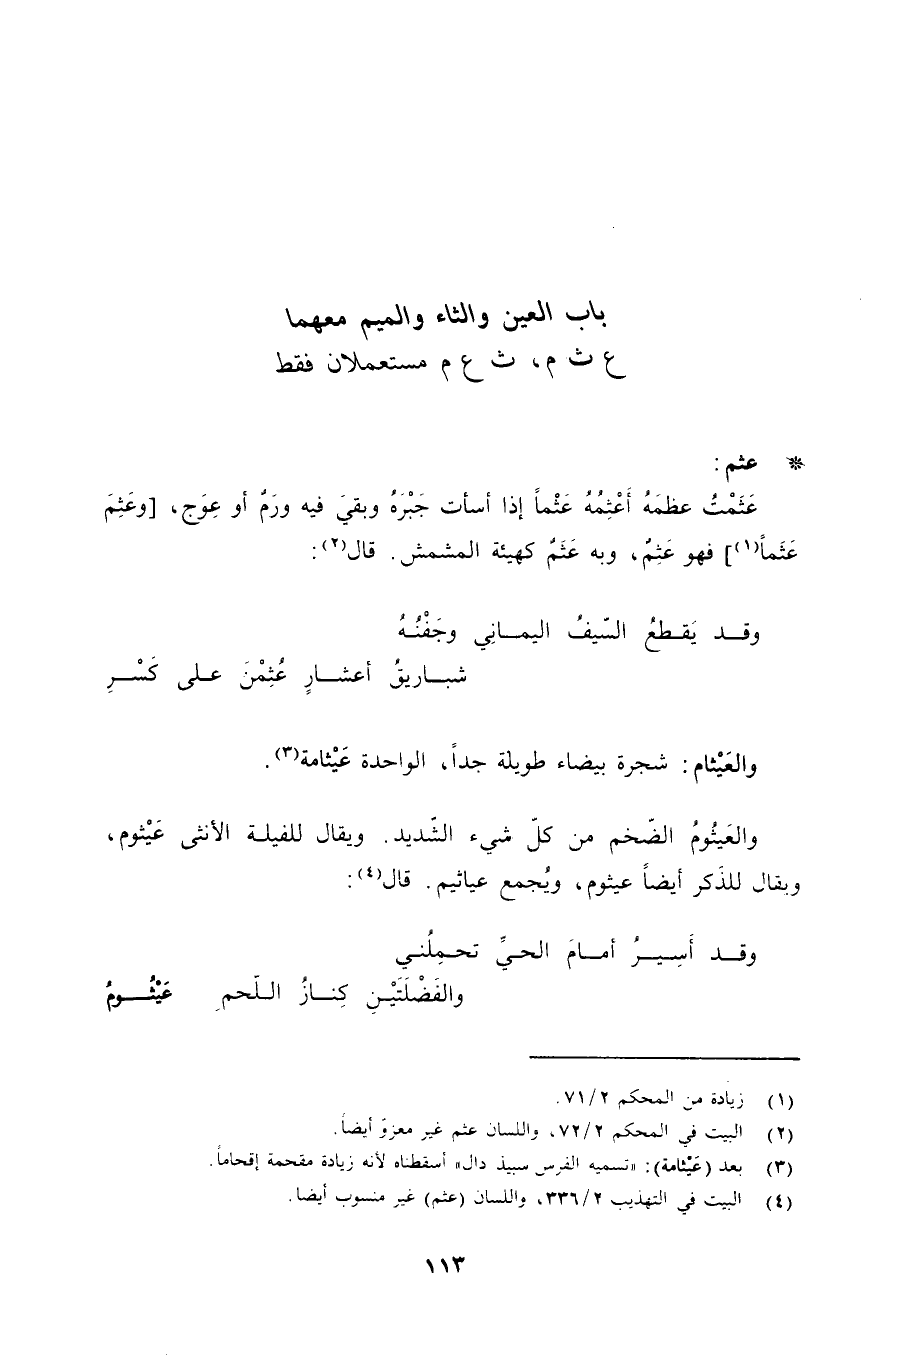 باب العين والثاء والميم معهما
ع ث م، ث ع م مستعملان فقط
* عثم :
عَثَمْتُ عظمَهُ أَعْثِمُهُ عَثْماً إذا أسأت جَبْرَهُ وبقيَ فيه ورَمٌ أو عِوَج، [وعَثِمَ
عَثَماً(١)] فهو عَثِمٌ، وبه عَثَمٌ كهيئة المشمش. قال(٢):
وقد يَقطعُ السَّيفُ اليماني وجَفْنُهُ
شباريقُ أعشارٍ عُثِمْنَ على كَسْرِ
والعَيْثام: شجرة بيضاء طويلة جداً، الواحدة عَيْثامة(٣).
والعَيثُومُ الضّخم من كلّ شيء الشّديد. ويقال للفيلة الأنثى عَيْثوم،
ويقال للذَكر أيضاً عيثوم، ويُجمع عياثيم. قال(٤):
وقد أَسِيرُ أمامَ الحيِّ تحمِلُني
والفَضْلَتَيْنِ كِنازُ اللّحمِ عَيْثُومُ
(١) زيادة من المحكم ٧١/٢.
(٢) البيت في المحكم ٧٢/٢، واللسان عثم غير معزوّ أيضاً.
(٣) بعد (عَيْثامة): «تسميه الفرس سبيذ دال» أسقطناه لأنه زيادة مقحمة إقحاماً.
(٤) البيت في التهذيب ٣٣٦/٢، واللسان (عثم) غير منسوب أيضا.
١١٣